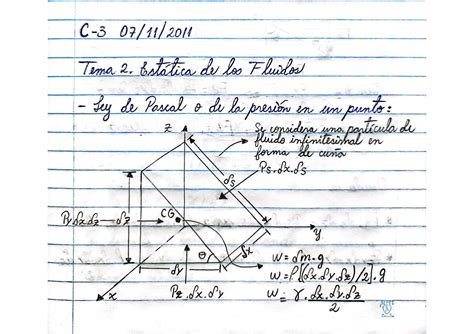 C-3 07/11/2011
Tema 2. Estática de los Fluidos
- Ley de Pascal o de la presión en un punto:
z
Se considera una partícula de
fluido infinitesimal en
forma de cuña
δs
Ps.δx.δs
Py.δx.δz
δz
CG
y
δx
θ
δy
x
Pz.δx.δy
W = δm.g
W = ρ[(δx.δy.δz)/2].g
W = γ.δx.δy.δz
2